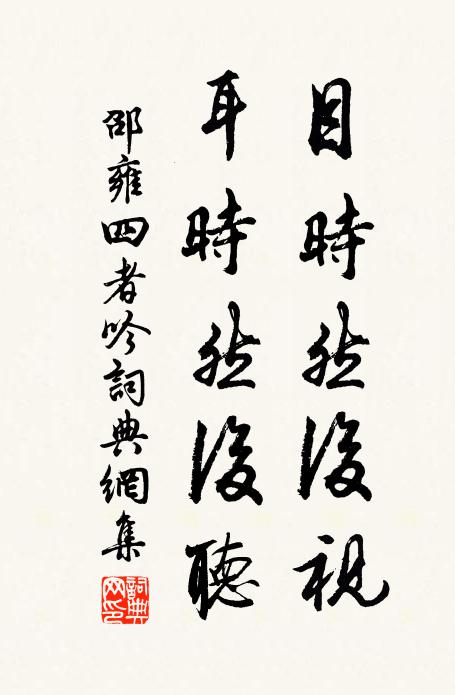 目時然後視
耳時然後聽
邵雍四者吟詞典網集
詞典網印